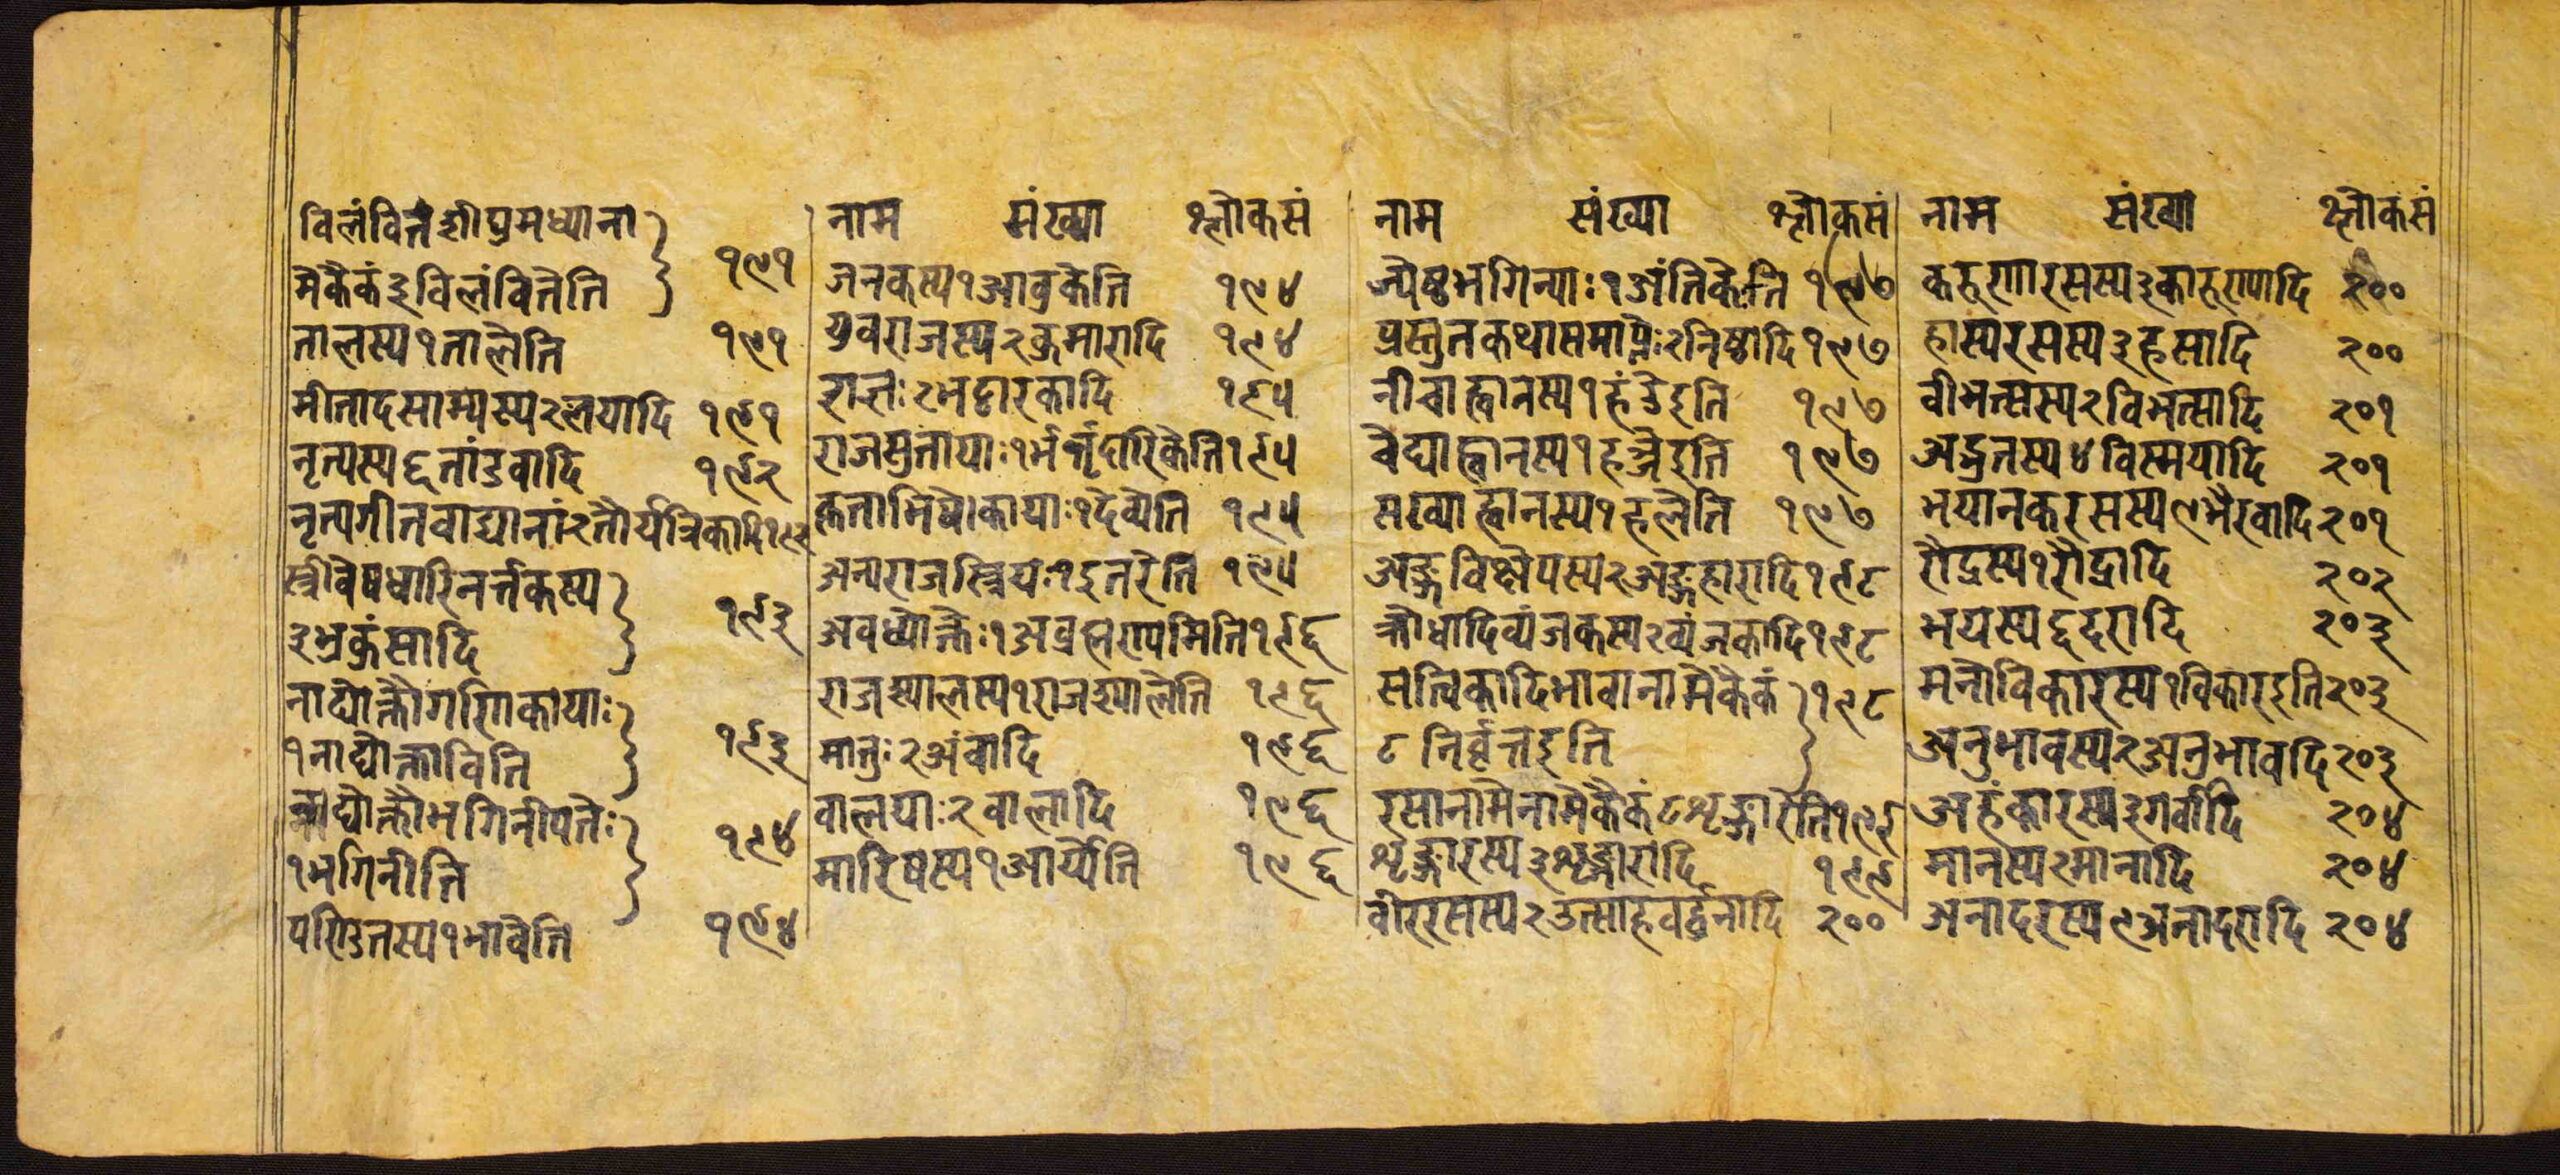 विलंवितशीघ्रमध्याना
मेकैकं३विलंवितेति १९१
तालस्य१तालेति १९१
गीतादसाम्यस्य२लयादि १९१
नृत्यस्य६तांडवादि १९२
नृत्यगीतवाद्यानां२तौर्यत्रिकादि१९२
स्त्रीवेषधारिनर्त्तकस्य
३भ्रकुंसादि १९३
नाद्योक्तौगणिकायाः
१नाद्योक्ताविति १९३
नाद्योक्तौभगिनीपतेः
१भगिनीति १९४
पण्डितस्य१भावेति १९४
नाम संख्या श्लोकसं
जनकस्य१आवुकेति १९४
युवराजस्य२कुमारादि १९४
राज्ञः२भट्टारकादि १९५
राजसुतायाः१भर्त्तृदारिकेति१९५
कृताभिषेकायाः१देव्येति १९५
अन्यराजस्त्रियः१इतरेति १९५
अवध्योक्तेः१अव्रह्मण्यमिति१९६
राजश्यालस्य१राजश्यालेति १९६
मातुः२अंवादि १९६
वालयाः२वालादि १९६
मारिषस्य१आर्य्येति १९६
नाम संख्या श्लोकसं
ज्येष्ठभगिन्याः१अंतिकेति १९७
प्रस्तुतकथासमाप्तेः२निष्ठादि१९७
नीचाह्वानस्य१हंडेइति १९७
चेद्याह्वानस्य१हञ्जेइति १९७
सख्याह्वानस्य१हलेति १९७
अङ्गविक्षेपस्य२अङ्गहारादि१९८
क्रोधादिव्यंजकस्य२व्यंजकादि१९८
सत्विकादिभावानामेकैकं
८निर्वृत्तइति १९८
रसानामेनामेकैकं८शृङ्गारेति१९९
शृङ्गारस्य३शृङ्गारादि १९९
वीररसस्य२उत्साहवर्द्धनादि २००
नाम संख्या श्लोकसं
करुणारसस्य३कारुण्यादि २००
हास्यरसस्य३हसादि २००
वीभत्सस्य२विभत्सादि २०१
अद्भुतस्य४विस्मयादि २०१
भयानकरसस्य९भैरवादि२०१
रौद्रस्य१रौद्रादि २०२
भयस्य६दरादि २०३
मनोविकारस्य१विकारइति२०३
अनुभावस्य२अनुभावदि२०३
अहंकारस्य३गर्वादि २०४
मानस्य२मानादि २०४
अनादरस्य९अनादरादि २०४